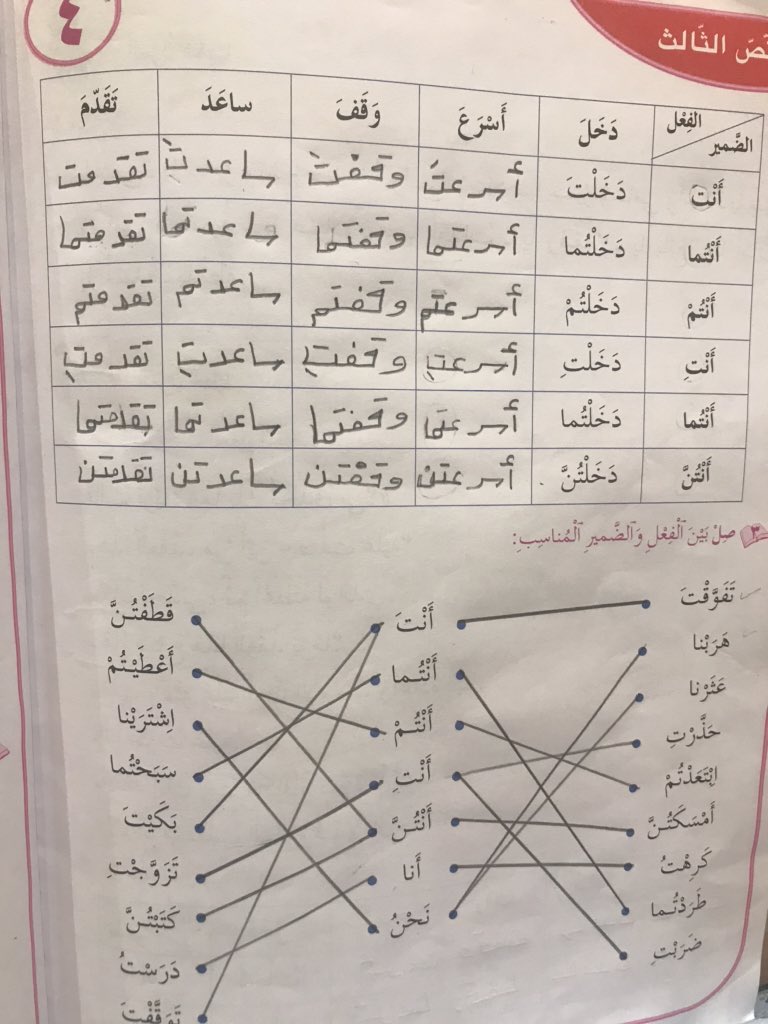 ٤
ـصّ الثّالث
الفِعْل الضَّمير دَخَلَ أَسْرَعَ وَقَفَ ساعَدَ تَقَدّمَ
أَنْتَ دَخَلْتَ أسرعتَ وقفْتَ ساعدتَ تقدمت
أَنْتُما دَخَلْتُما أسرعتما وقفتما ساعدتما تقدمتما
أَنْتُمْ دَخَلْتُمْ أسرعتم وقفتم ساعدتم تقدمتم
أَنْتِ دَخَلْتِ أسرعتِ وقفتِ ساعدتِ تقدمتِ
أَنْتُما دَخَلْتُما أسرعتما وقفتما ساعدتما تقدمتما
أَنْتُنَّ دَخَلْتُنَّ أسرعتن وقفتن ساعدتن تقدمتن
٣ صِلْ بَيْنَ ٱلْفِعْلِ وَٱلضَّميرِ ٱلْمُناسِبِ:
تَفَوَّقْتَ أَنْتَ قَطَفْتُنَّ
هَرَبْنا أَنْتُما أَعْطَيْتُمْ
عَثَرْنا أَنْتُمْ اِشْتَرَيْنا
حَذَّرْتِ أَنْتِ سَبَحْتُما
اِبْتَعَدْتُمْ أَنْتُنَّ بَكَيْتَ
أَمْسَكْتُنَّ أَنا تَزَوَّجْتِ
كَرِهْتُ نَحْنُ كَتَبْتُنَّ
طَرَدْتُما دَرَسْتُ
ضَرَبْتِ تَوَقَّفْتَ